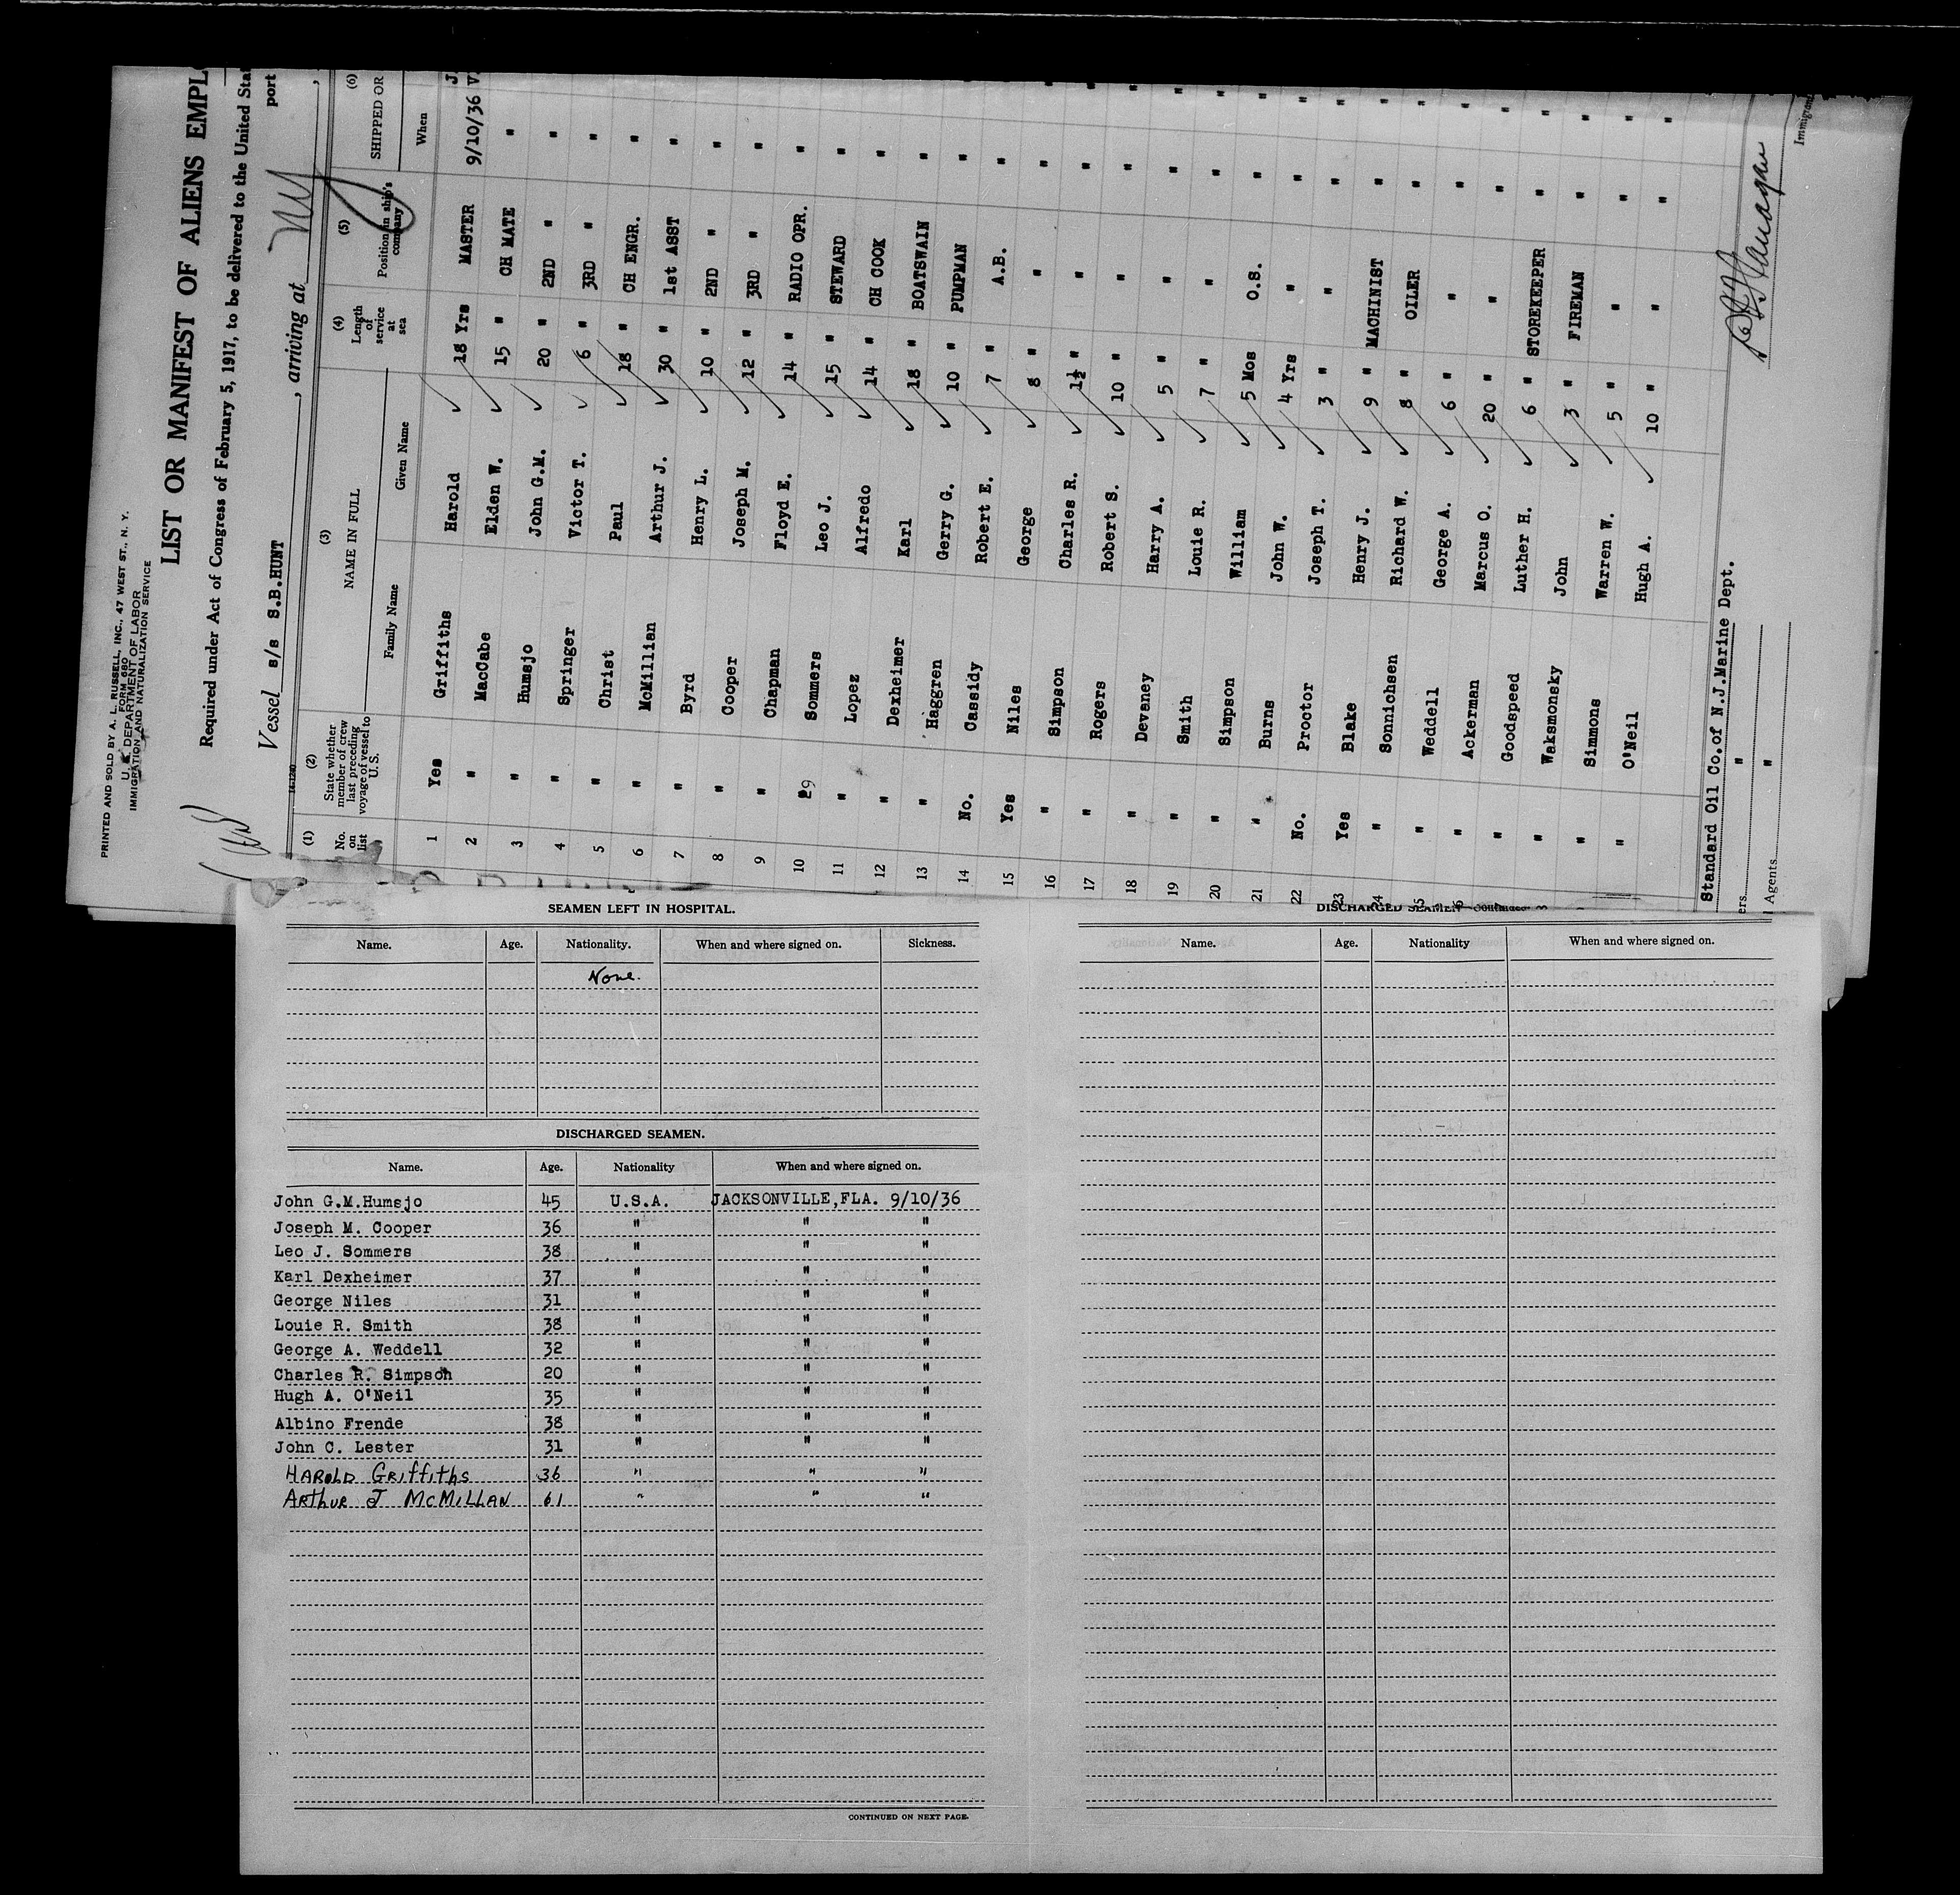 PRINTED AND SOLD BY A. L. RUSSELL, INC., 47 WEST ST., N. Y.
FORM 680
U. S. DEPARTMENT OF LABOR
IMMIGRATION AND NATURALIZATION SERVICE
LIST OR MANIFEST OF ALIENS EMPL
Required under Act of Congress of February 5, 1917, to be delivered to the United Stat
Vessel s/s S.B.HUNT , arriving at NY , port
(1) (2) (3) (4) (5) (6)
No. on list State whether member of crew last preceding voyage of vessel to U.S. NAME IN FULL Length of service at sea Position in ship's company SHIPPED OR
Family Name Given Name When
1 Yes Griffiths Harold 18 Yrs MASTER 9/10/36
2 " MacCabe Elden W. 15 " CH MATE "
3 " Humsjo John G.M. 20 " 2ND " "
4 " Springer Victor T. 6 " 3RD " "
5 " Christ Paul 18 " CH ENGR. "
6 " McMillian Arthur J. 30 " 1st ASST "
7 " Byrd Henry L. 10 " 2ND " "
8 " Cooper Joseph M. 12 " 3RD " "
9 " Chapman Floyd E. 14 " RADIO OPR. "
10 29 Sommers Leo J. 15 " STEWARD "
11 " Lopez Alfredo 14 " CH COOK "
12 " Dexheimer Karl 18 " BOATSWAIN "
13 " Haggren Gerry G. 10 " PUMPMAN "
14 No. Cassidy Robert E. 7 " A.B. "
15 Yes Niles George 8 " " "
16 " Simpson Charles R. 1½ " " "
17 " Rogers Robert S. 10 " " "
18 " Devaney Harry A. 5 " " "
19 " Smith Louie R. 7 " " "
20 " Simpson William 5 Mos O.S. "
21 " Burns John W. 4 Yrs " "
22 No. Proctor Joseph T. 3 " " "
23 Yes Blake Henry J. 9 " MACHINIST "
24 " Sonnichsen Richard W. 8 " OILER "
25 " Weddell George A. 6 " " "
" Ackerman Marcus O. 20 " " "
" Goodspeed Luther H. 6 " STOREKEEPER "
" Waksmonsky John 3 " FIREMAN "
" Simmons Warren W. 5 " " "
" O'Neil Hugh A. 10 " " "
Standard Oil Co.of N.J.Marine Dept.
ers. "
Agents "
Immigran
SEAMEN LEFT IN HOSPITAL.
Name. Age. Nationality. When and where signed on. Sickness.
None.
DISCHARGED SEAMEN.
Name. Age. Nationality When and where signed on.
John G.M.Humsjo 45 U.S.A. JACKSONVILLE,FLA. 9/10/36
Joseph M. Cooper 36 " " "
Leo J. Sommers 38 " " "
Karl Dexheimer 37 " " "
George Niles 31 " " "
Louie R. Smith 38 " " "
George A. Weddell 32 " " "
Charles R. Simpson 20 " " "
Hugh A. O'Neil 35 " " "
Albino Frende 38 " " "
John C. Lester 31 " " "
HAROLD GRIFFITHS 36 " " "
ARTHUR J MCMILLAN 61 " " "
CONTINUED ON NEXT PAGE.
DISCHARGED SEAMEN—Continued
Name. Age. Nationality When and where signed on.